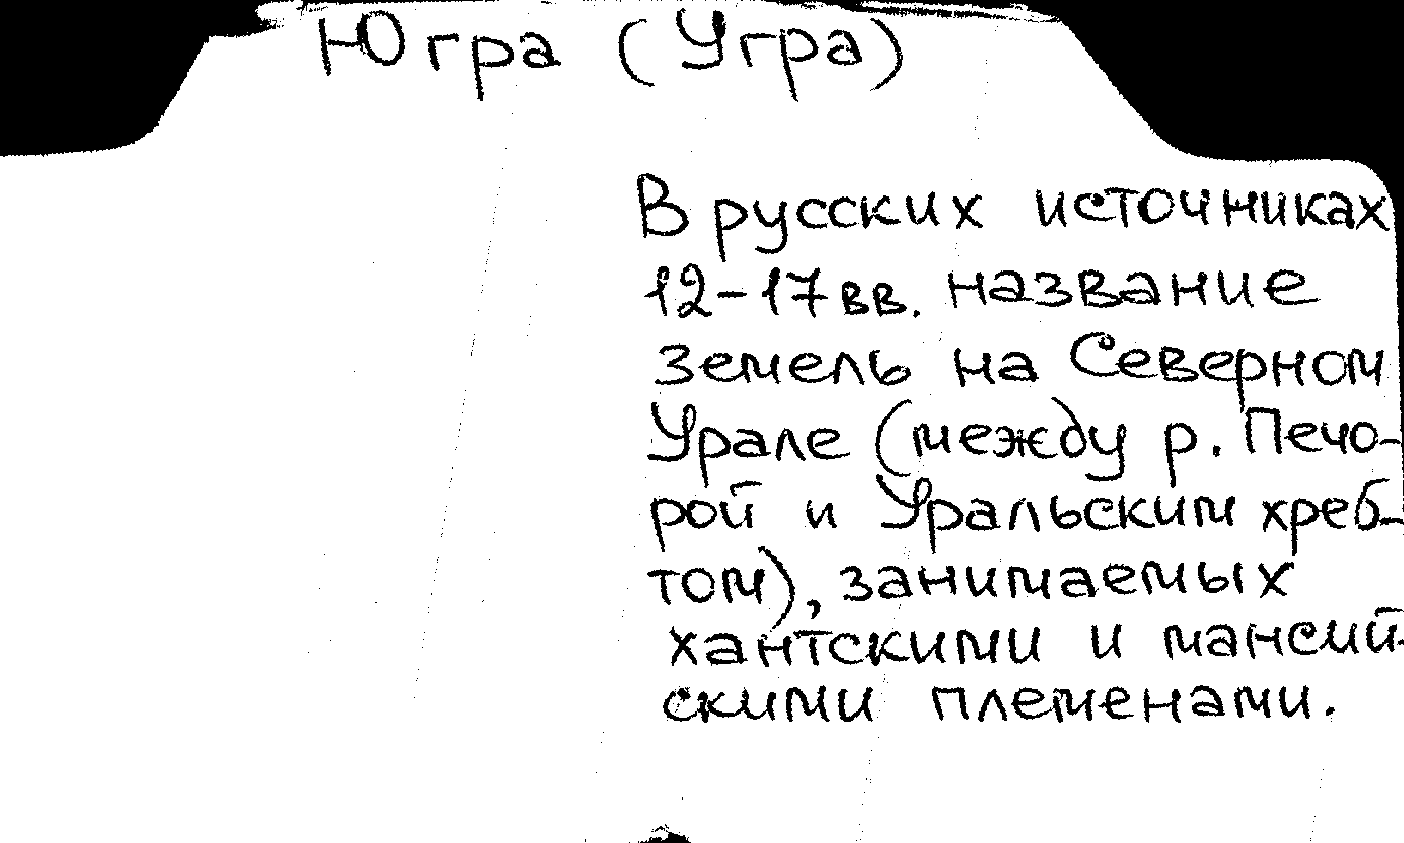 Югра (Угра)
В русских источниках
12-17 вв. название
земель на Северном
Урале (между р. Печо-
рой и Уральским хреб-
том), занимаемых
хантскими и мансий-
скими племенами.